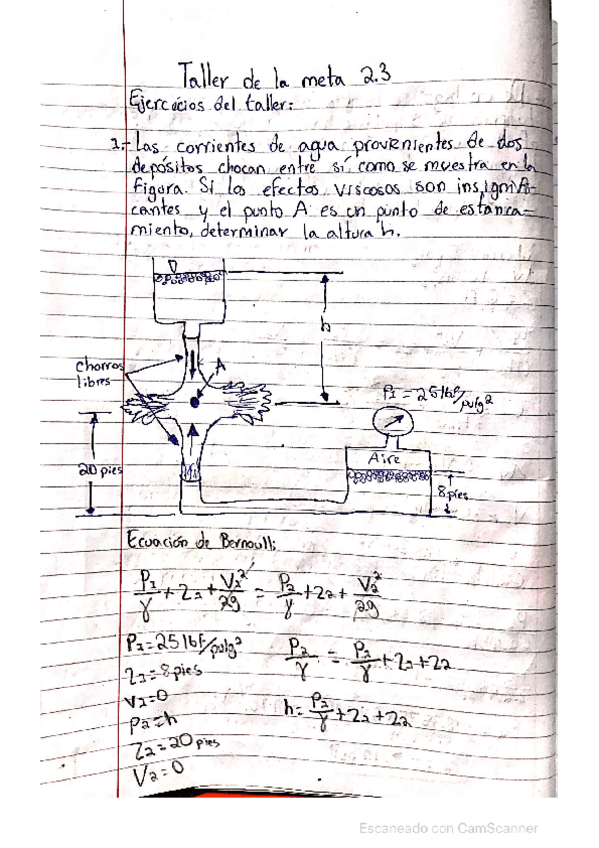 Taller de la meta 2.3
Ejercicios del taller:
1.- Las corrientes de agua provenientes de dos
depósitos chocan entre sí, como se muestra en la
figura. Si los efectos viscosos son insignifi-
cantes y el punto A es un punto de estanca-
miento, determinar la altura h.
h
A
chorros
libres
P1 = 25 lbf/pulg²
Aire
20 pies
8 pies
Ecuación de Bernoulli
P1/γ + Z1 + V1²/2g = P2/γ + Z2 + V2²/2g
P1 = 25 lbf/pulg²
P2/γ = P1/γ + Z1 + Z2
Z1 = 8 pies
V1 = 0
h = P1/γ + Z1 + Z2
P2 = h
Z2 = 20 pies
V2 = 0
Escaneado con CamScanner